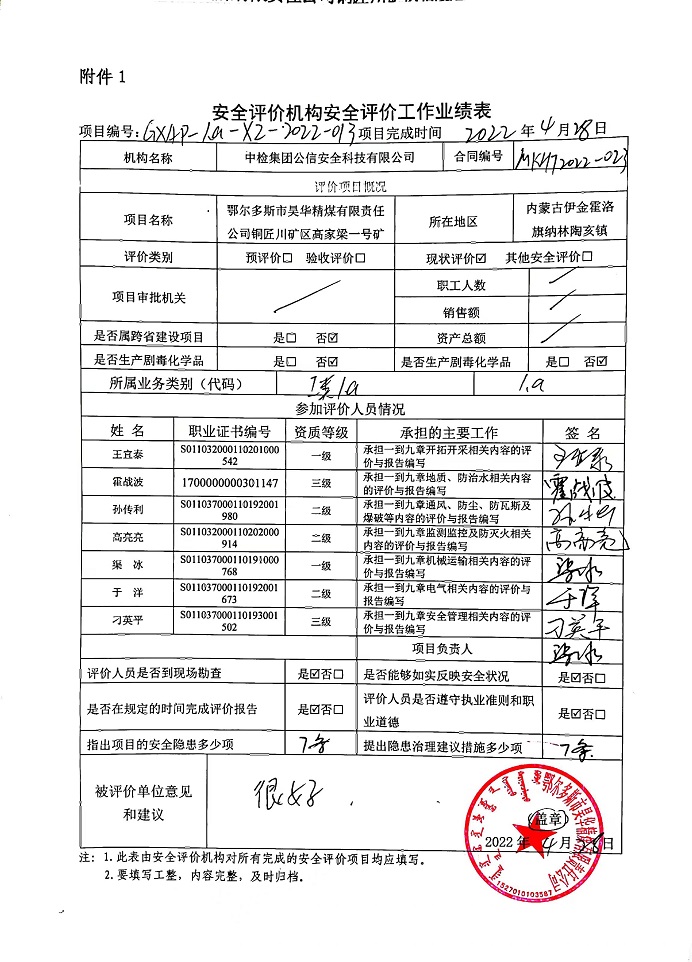 附件 1
安全评价机构安全评价工作业绩表
项目编号：GXAP-1a-XZ-2022-013 项目完成时间 2022 年 4 月 28 日
机构名称 中检集团公信安全科技有限公司 合同编号 MKHT2022-023
评价项目概况
项目名称 鄂尔多斯市昊华精煤有限责任公司铜匠川矿区高家梁一号矿 所在地区 内蒙古伊金霍洛旗纳林陶亥镇
评价类别 预评价□ 验收评价□ 现状评价☑ 其他安全评价□
项目审批机关 职工人数
销售额
是否属跨省建设项目 是□ 否☑ 资产总额
是否生产剧毒化学品 是□ 否☑ 是否生产剧毒化学品 是□ 否☑
所属业务类别（代码） 1类1a 1.a
参加评价人员情况
姓 名 职业证书编号 资质等级 承担的主要工作 签 名
王宜泰 S011032000110201000542 一级 承担一到九章开拓开采相关内容的评价与报告编写
霍战波 1700000000301147 三级 承担一到九章地质、防治水相关内容的评价与报告编写 霍战波
孙传利 S011037000110192001980 二级 承担一到九章通风、防尘、防瓦斯及爆破等内容的评价与报告编写
高亮亮 S011032000110202000914 二级 承担一到九章监测监控及防灭火相关内容的评价与报告编写 高亮亮
渠 冰 S011037000110191000768 一级 承担一到九章机械运输相关内容的评价与报告编写 渠冰
于 洋 S011037000110192001673 二级 承担一到九章电气相关内容的评价与报告编写 于洋
刁英平 S011037000110193001502 三级 承担一到九章安全管理相关内容的评价与报告编写 刁英平
项目负责人 渠冰
评价人员是否到现场勘查 是☑否□ 是否能够如实反映安全状况 是☑否□
是否在规定的时间完成评价报告 是☑否□ 评价人员是否遵守执业准则和职业道德 是☑否□
指出项目的安全隐患多少项 7条 提出隐患治理建议措施多少项 7条
被评价单位意见和建议 很好
（盖章）
2022 年 4 月 28 日
鄂尔多斯市昊华精煤有限责任公司
1527010103587
注：1.此表由安全评价机构对所有完成的安全评价项目均应填写。
2.要填写工整，内容完整，及时归档。